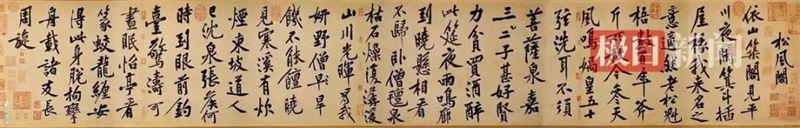 松風閣
依山築閣見平
川夜闌箕斗插
屋椽我來名之
意適然老松魁
梧數百年斧
斤所赦今參天
風鳴媧皇五十
弦洗耳不須
菩薩泉嘉
三二子甚好賢
力貧買酒醉
此筵夜雨鳴廊
到曉懸相看
不歸臥僧氈泉
枯石燥復潺湲
山川光暉為我
妍野僧早旱
饑不能饘曉
見寒溪有炊
煙東坡道人
已沈泉張侯何
時到眼前釣
臺驚濤可
晝眠怡亭看
篆蛟龍纏安
得此身脫拘攣
舟載諸友長
周旋
极目新闻